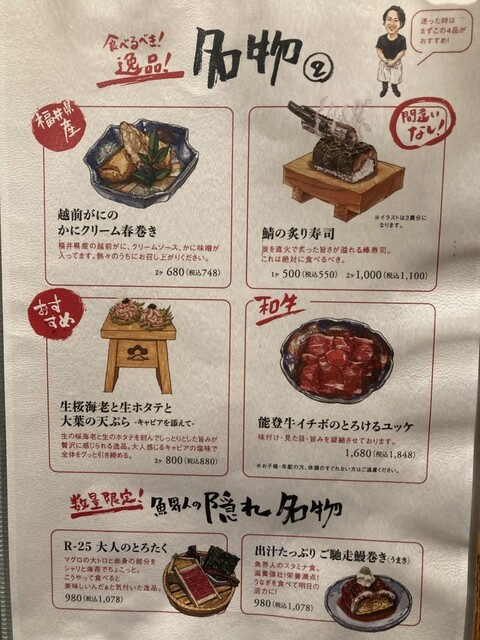 食べるべき!
逸品!
名物②
迷った時は
まずこの4品が
おすすめ!
福井県産
越前がにの
かにクリーム春巻き
福井県産の越前がに、クリームソース、かに味噌が
入ってます。熱々のうちにお召し上がりください。
2ヶ 680(税込748)
間違いない!
※イラストは3貫分に
なります。
鯖の炙り寿司
炭を直火で炙った旨さが溢れる棒寿司。
これは絶対に食べるべき。
1ヶ 500(税込550) 2ヶ1,000(税込1,100)
おすすめ
生桜海老と生ホタテと
大葉の天ぷら -キャビアを添えて-
生の桜海老と生のホタテを刻んでしっとりとした旨みが
贅沢に感じられる逸品。大人感じるキャビアの塩味で
全体をグッと引き締める。
2ヶ 800(税込880)
和牛
能登牛イチボのとろけるユッケ
味付け・見た目・旨みを凝縮させております。
1,680(税込1,848)
※お子様・年配の方、体調のすぐれない方はご遠慮ください。
数量限定!
魚男人の隠れ名物
R-25 大人のとろたく
マグロの大トロと赤身の部分を
シャリと海苔でちょこっと。
こうやって食べると
美味しいんだぁと気付いた逸品。
980(税込1,078)
出汁たっぷりご馳走鰻巻き(うまき)
魚界人のスタミナ食。
滋養強壮!栄養満点!
うなぎを食べて明日の
活力に!
980(税込1,078)